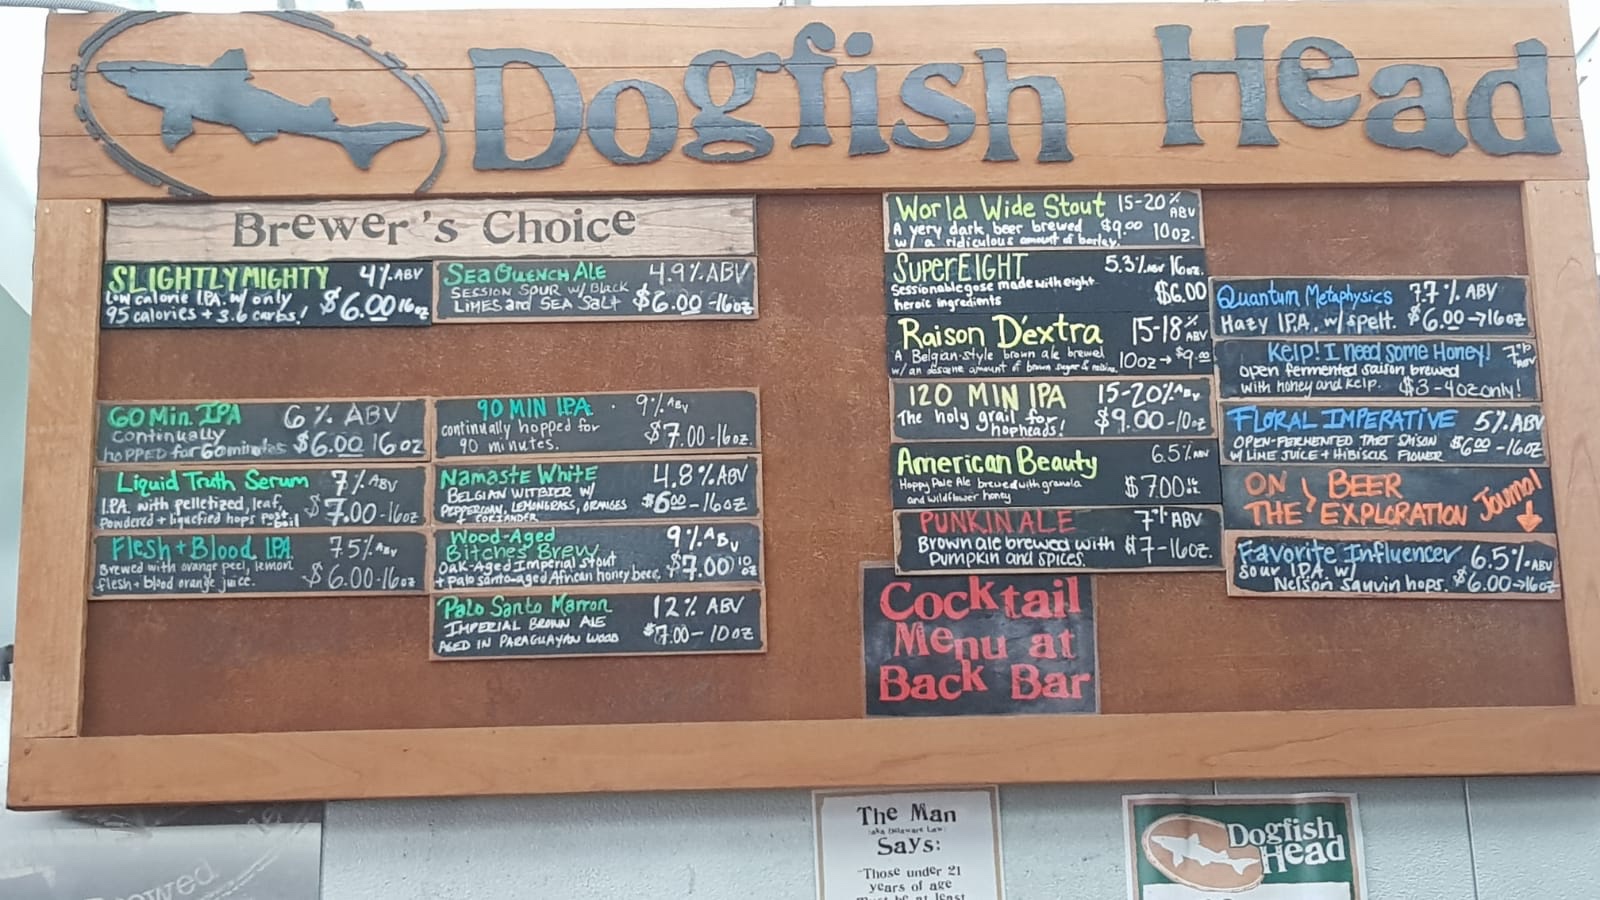 Dogfish Head
Brewer's Choice
SLIGHTLY MIGHTY 4% ABV
Low calorie IPA w/ only $6.00 16oz
95 calories + 3.6 carbs!
SeaQuench Ale 4.9% ABV
SESSION SOUR w/ Black
LIMES and SEA SaLt $6.00-16oz
60 Min. IPA 6% ABV
Continually
hoPPED for 60 minutes $6.00 16oz
90 MIN IPA. 9% ABV
continually hopped for
90 minutes. $7.00-16oz.
Liquid Truth Serum 7% ABV
I.P.A. with pelletized, leaf, $7.00-16oz
Powdered + liquefied hops post-boil
Namaste White 4.8% ABV
BELGIAN WITBIER W/
PEPPERCORN, LEMONGRASS, ORANGES $6.00-16oz
+ CORIANDER
Flesh + Blood IPA. 7.5% ABV
Brewed with orange peel, lemon
flesh + blood orange juice. $6.00-16oz
Wood-Aged 9% ABV
Bitches Brew
Oak-Aged Imperial Stout $7.00 10oz
+ Palo santo-aged African honey beer.
Palo Santo Marron 12% ABV
IMPERIAL BROWN ALE $7.00-10oz
AGED IN PARAGUAYAN WOOD
World Wide Stout 15-20% ABV
A very dark beer brewed $9.00 10oz.
w/ a ridiculous amount of barley.
SuperEIGHT 5.3% ABV 16oz.
Sessionable gose made with eight $6.00
heroic ingredients
Raison D'extra 15-18% ABV
A Belgian-style brown ale brewed 10oz→$9.00
w/ an obscene amount of brown sugar & raisins.
120 MIN IPA 15-20% ABV
The holy grail for $9.00-10oz
hopheads!
American Beauty 6.5% ABV
Hoppy Pale Ale brewed with granola $7.00 16oz
and wildflower honey
PUNKIN ALE 7% ABV
Brown ale brewed with $7-16oz.
Pumpkin and spices.
Cocktail
Menu at
Back Bar
Quantum Metaphysics 7.7% ABV
Hazy IPA. w/ spelt. $6.00→16oz
Kelp! I need some Honey! 7% ABV
open fermented saison brewed
with honey and kelp. $3-4oz only!
FLORAL IMPERATIVE 5% ABV
OPEN-FERMENTED TART SAISON $6.00-16oz
W/ LIME JUICE + HIBISCUS FLOWER
ON THE } BEER EXPLORATION Journal ↓
Favorite Influencer 6.5% ABV
Sour IPA w/
Nelson Sauvin hops. $6.00→16oz
The Man
(aka Delaware Law)
Says:
Those under 21
years of age
must be at least
Dogfish
Head